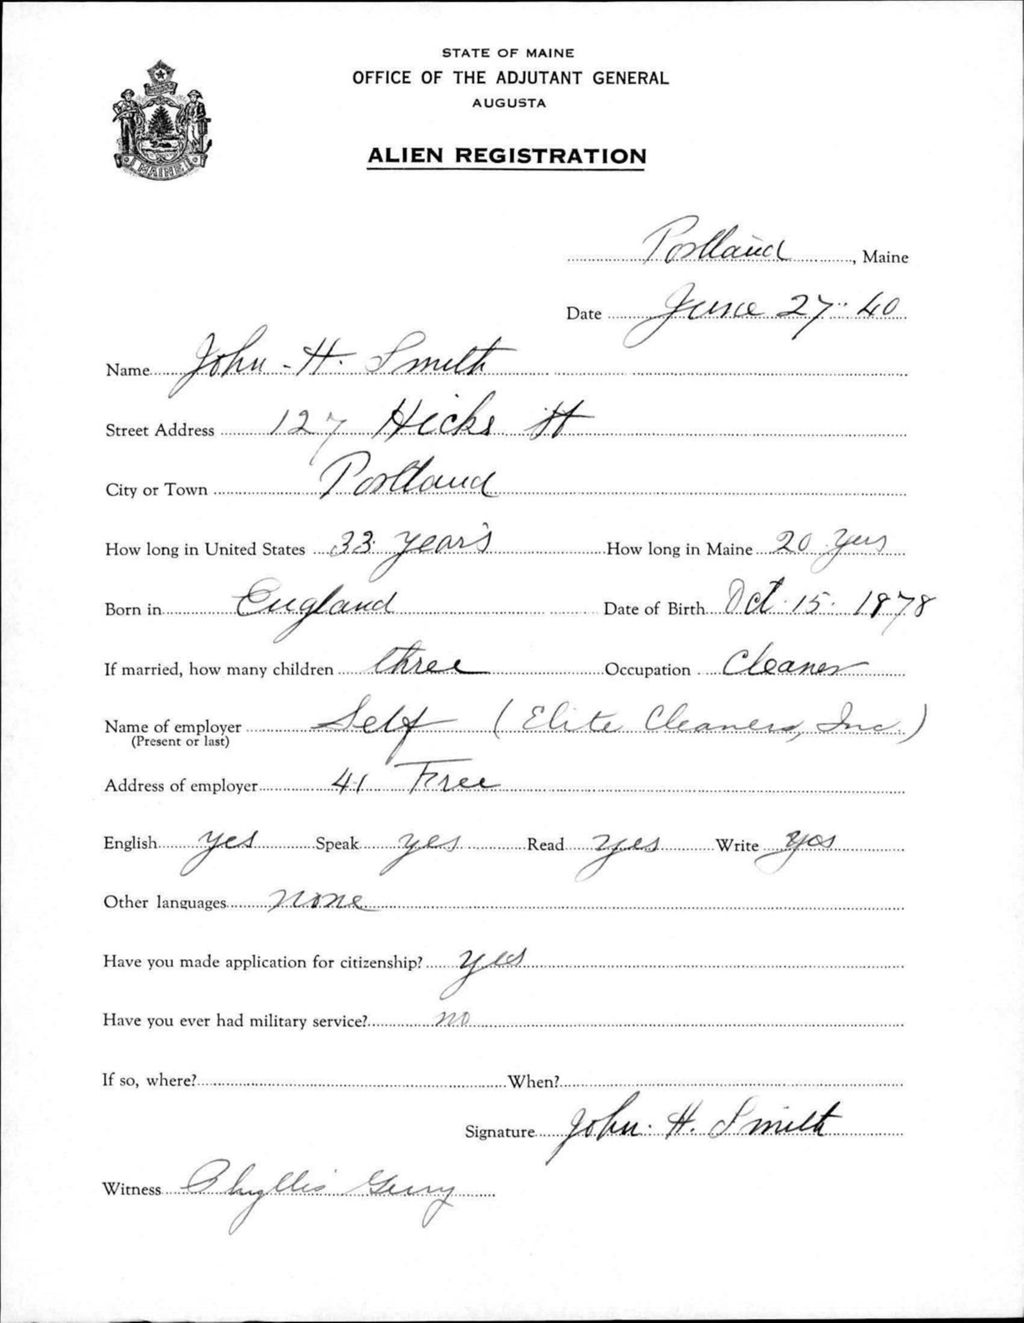 STATE OF MAINE
OFFICE OF THE ADJUTANT GENERAL
AUGUSTA
MAINE
ALIEN REGISTRATION
Portland, Maine
Date June 27" 40
Name John - H. Smith
Street Address 127 Hicks St
City or Town Portland
How long in United States 33 years How long in Maine 20 yrs
Born in England Date of Birth Oct. 15. 1878
If married, how many children three Occupation Cleaner
Name of employer Self (Elite Cleaners, Inc.)
(Present or last)
Address of employer 41 Free
English yes Speak yes Read yes Write yes
Other languages none
Have you made application for citizenship? yes
Have you ever had military service? no
If so, where? When?
Signature John. H. Smith
Witness Phyllis Gerry